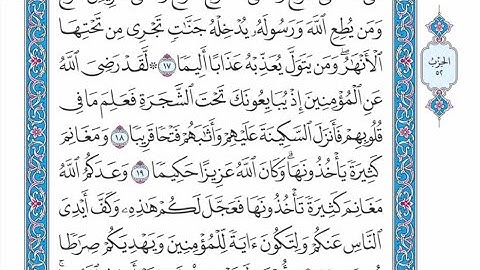 وَمَن يُطِعِ ٱللَّهَ وَرَسُولَهُۥ يُدْخِلْهُ جَنَّـٰتٍ تَجْرِى مِن تَحْتِهَا
ٱلْأَنْهَـٰرُ ۖ وَمَن يَتَوَلَّ يُعَذِّبْهُ عَذَابًا أَلِيمًا ١٧ ۞ لَّقَدْ رَضِىَ ٱللَّهُ
عَنِ ٱلْمُؤْمِنِينَ إِذْ يُبَايِعُونَكَ تَحْتَ ٱلشَّجَرَةِ فَعَلِمَ مَا فِى
قُلُوبِهِمْ فَأَنزَلَ ٱلسَّكِينَةَ عَلَيْهِمْ وَأَثَـٰبَهُمْ فَتْحًا قَرِيبًا ١٨ وَمَغَانِمَ
كَثِيرَةً يَأْخُذُونَهَا ۗ وَكَانَ ٱللَّهُ عَزِيزًا حَكِيمًا ١٩ وَعَدَكُمُ ٱللَّهُ
مَغَانِمَ كَثِيرَةً تَأْخُذُونَهَا فَعَجَّلَ لَكُمْ هَـٰذِهِۦ وَكَفَّ أَيْدِىَ
ٱلنَّاسِ عَنكُمْ وَلِتَكُونَ ءَايَةً لِّلْمُؤْمِنِينَ وَيَهْدِيَكُمْ صِرَٰطًا
الحزب
٥٢